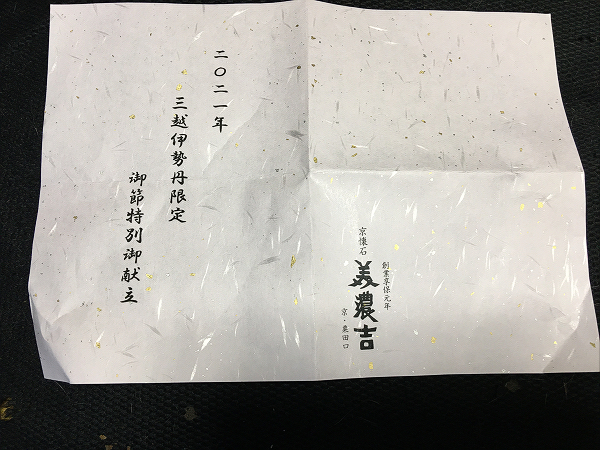 創業享保元年
京懐石
美濃吉
京・粟田口
二〇二一年
三越伊勢丹限定
御節特別御献立